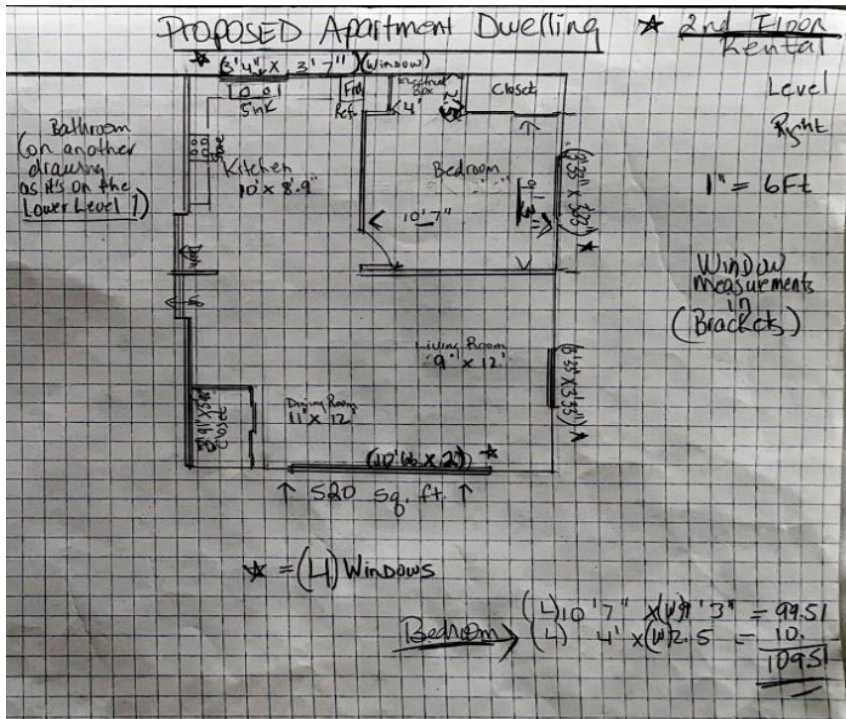 PROPOSED Apartment Dwelling ★ 2nd Floor
Rental
Level
Right
★ (3'4" x 3'7") (Window)
Sink
Ref.
Electrical
Box
4'
2.5
Closet
Bathroom
(on another
drawing
as it's on the
Lower Level 1)
Stove
Kitchen
10' x 8'.9"
Bedroom
10'7"
9'3"
1" = 6Ft
Window
measurements
in
(Brackets)
Living Room
9' x 12'
Dining Room
11' x 12'
Closet
★
↑ 520 sq. ft. ↑
★ = (4) Windows
Bedroom → (L) 10'7" x (W) 9'3" = 99.51
(L) 4' x (W) 2.5 = 10.
109.51